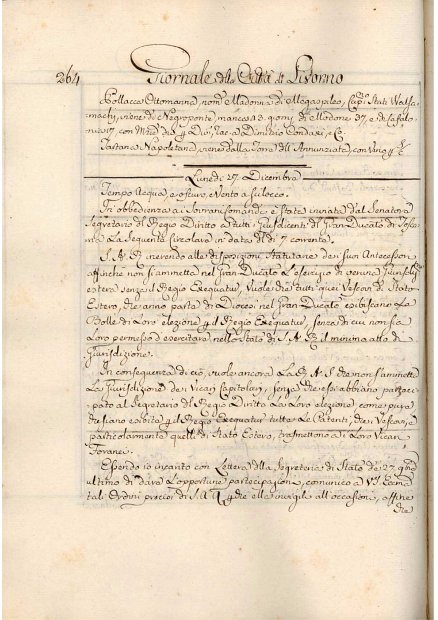 264 Giornale della Città di Livorno
Pollacca Ottomanna, nom.ta Madonna di Megaspileo, Cap.no Stati
machi, viene di Negroponte, manca 3 giorni di Modone 37, e di Cefalo-
nia 17, con
Tartana Napoletana, viene dalla Torre dell'Annunziata con Vino p
Lunedì 27. Dicembre
Tempo Acqua, e oscuro, e Vento a scilocco.
In obbedienza ai Sovrani comandi è stata inviata dal Senatore
Segretario del Regio Diritto a tutti i Giusdicenti del Gran Ducato di Tosca-
na La Seguente Circolare in data de' 7. corrente.
S. A. R. inerendo alle disposizioni Statutarie de' suoi Antecessori
affinché non si ammetta nel Gran Ducato L'esercizio di veruna Giurisdiz.e
estera senza il Regio Exequatur, Vuole che tutti quei Vescovi di Stato
Estero, che anno parte di Diocesi nel Gran Ducato esibiscano Le
Bolle di Loro elezione p il Regio Exequatur, senza di cui non sia
Loro permesso d'esercitare nello Stato di S. A. R. il minimo atto di
Giurisdizione.
In conseguenza di ciò, vuole ancora La R. A. S. che non si ammette
La Giurisdizione de' Vicari Capitolari, senza che essi abbiano parteci-
pato al Segretario del Regio Diritto La Loro elezione come pure
che siano esibite p il Regio Exequatur tutte Le Patenti, che i Vescovi, e
particolarmente quelli di Stato Estero, trasmettono a i Loro Vicari
Foranei.
Essendo io incaricato con Lettera della Segreteria di Stato de' 27. 9bre
ultimo di dare L'opportune partecipazioni, comunico a VS.
tali Ordini precisi di S. A. R. p che ella invigili all'occasioni, affine
che